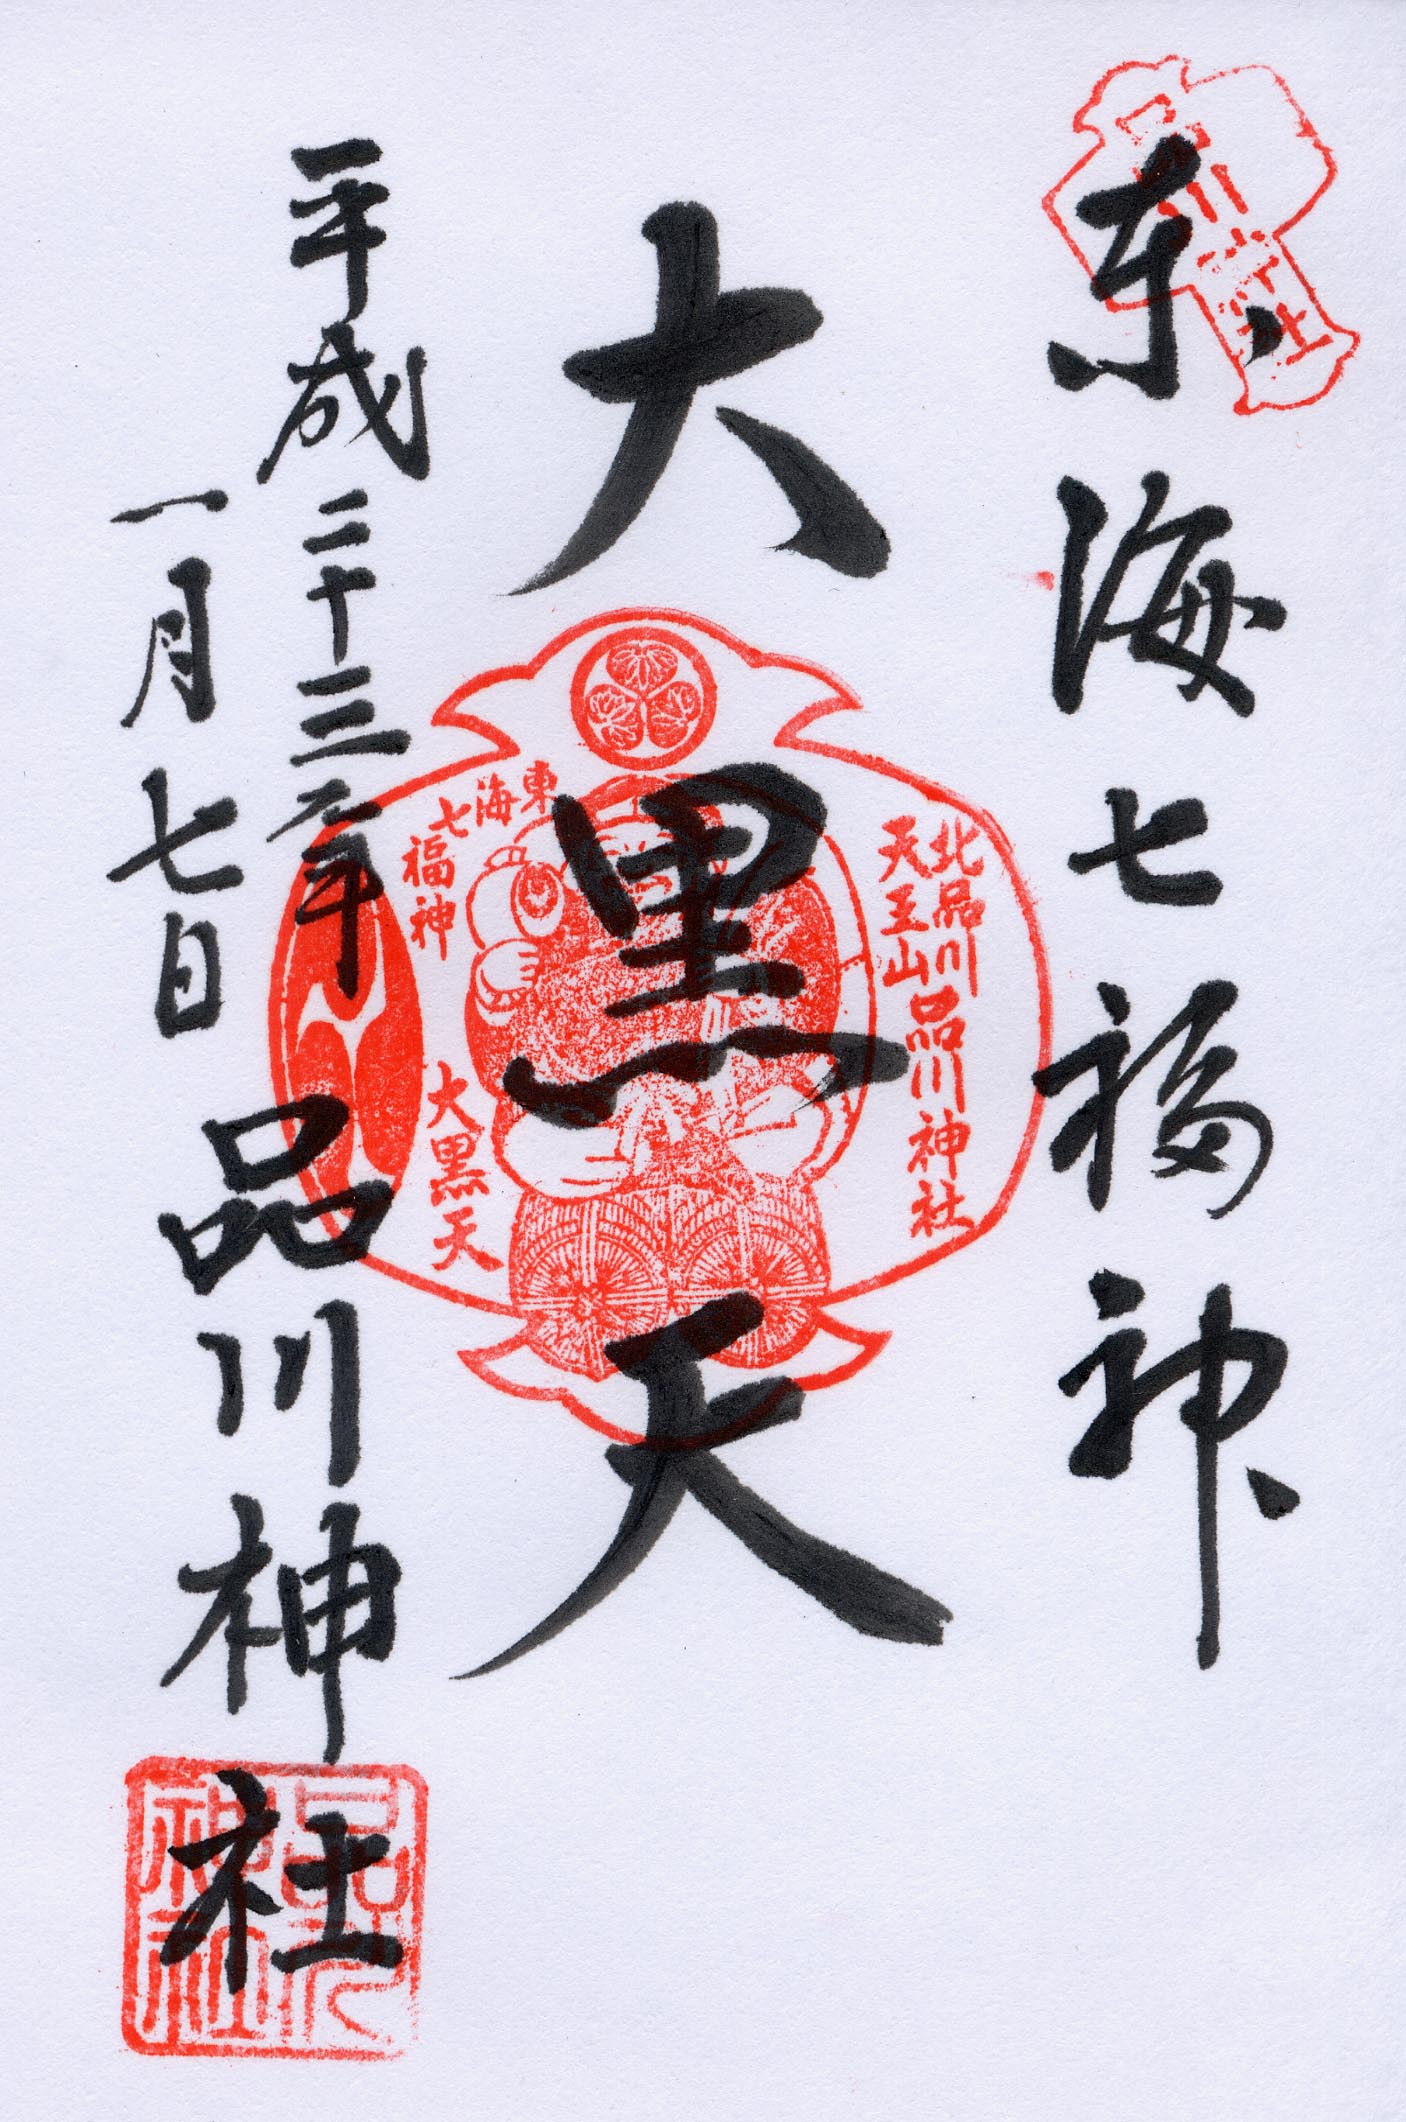 東海七福神
大黒天
平成二十三年
一月七日
品川神社
北品川
天王山
品川神社
東海七福神
大黒天
品川神社